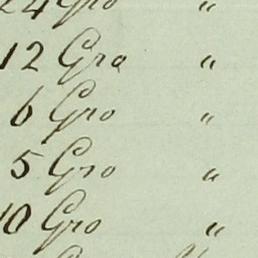 24 Gro "
12 Gro "
6 Gro "
5 Gro "
10 Gro "